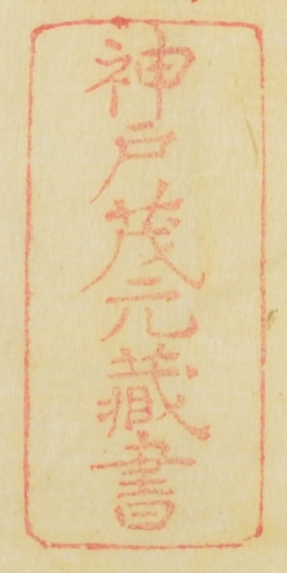 神戸茂元藏書